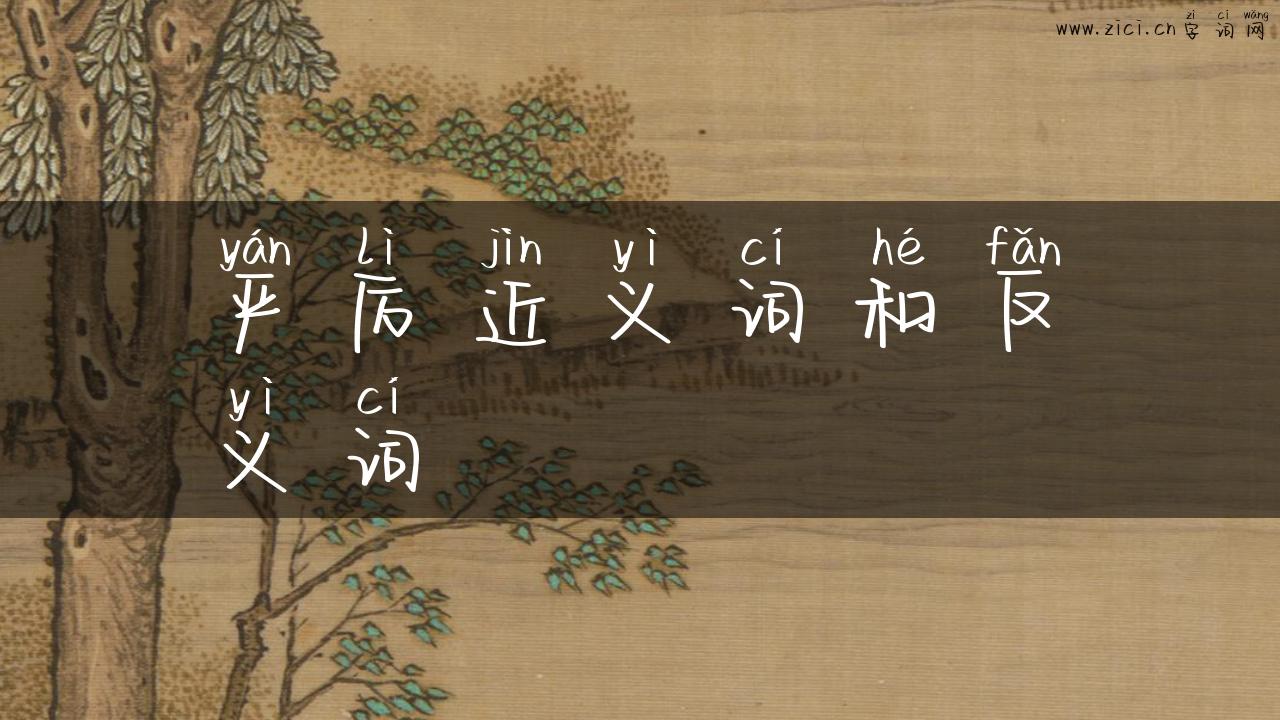 zì cí wǎng
www.zici.cn 字词网
yán lì jìn yì cí hé fǎn
严厉近义词和反
yì cí
义词